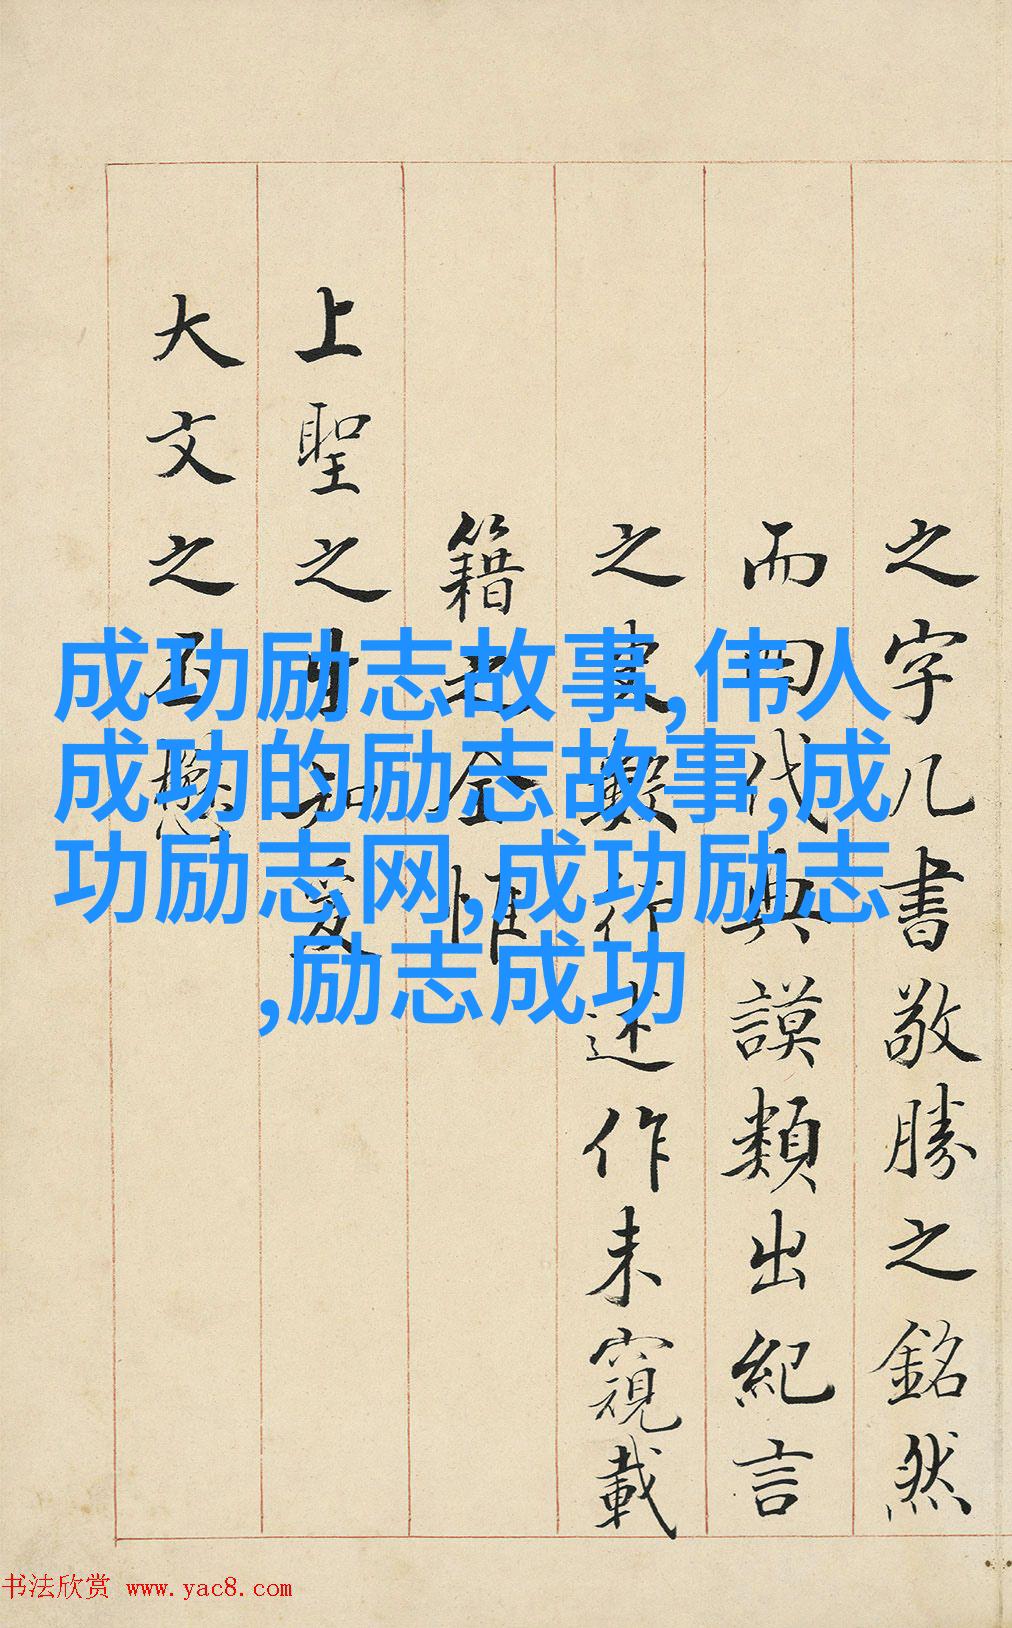 之字几書敬勝之銘然
而四代典謨類出紀言
之數行述作未窺載
籍之全惟
上聖之生知爰
大文之丕
成功励志故事,伟人
成功的励志故事,成
功励志网,成功励志
,励志成功
书法欣赏 www.yac8.com